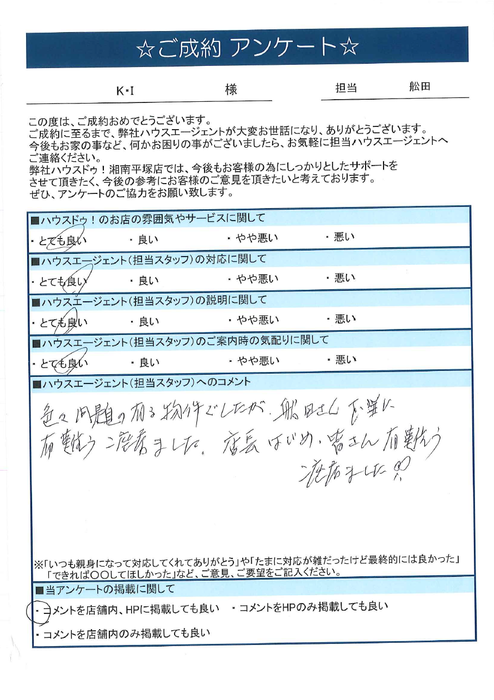 ☆ご成約 アンケート☆
K・I 様 担当 舩田
この度は、ご成約おめでとうございます。
ご成約に至るまで、弊社ハウスエージェントが大変お世話になり、ありがとうございます。
今後もお家の事など、何かお困りの事がございましたら、お気軽に担当ハウスエージェントへ
ご連絡ください。
弊社ハウスドゥ！湘南平塚店では、今後もお客様の為にしっかりとしたサポートを
させて頂きたく、今後の参考にお客様のご意見を頂きたいと考えております。
ぜひ、アンケートのご協力をお願い致します。
■ハウスドゥ！のお店の雰囲気やサービスに関して
・とても良い ・良い ・やや悪い ・悪い
■ハウスエージェント(担当スタッフ)の対応に関して
・とても良い ・良い ・やや悪い ・悪い
■ハウスエージェント(担当スタッフ)の説明に関して
・とても良い ・良い ・やや悪い ・悪い
■ハウスエージェント(担当スタッフ)のご案内時の気配りに関して
・とても良い ・良い ・やや悪い ・悪い
■ハウスエージェント(担当スタッフ)へのコメント
色々問題の有る物件でしたが、舩田さん本当に
有難う御座居ました。店長はじめ、皆さん有難う
御座居ました!!
※「いつも親身になって対応してくれてありがとう」や「たまに対応が雑だったけど最終的には良かった」
「できれば〇〇してほしかった」など、ご意見、ご要望をご記入ください。
■当アンケートの掲載に関して
・コメントを店舗内、HPに掲載しても良い ・コメントをHPのみ掲載しても良い
・コメントを店舗内のみ掲載しても良い